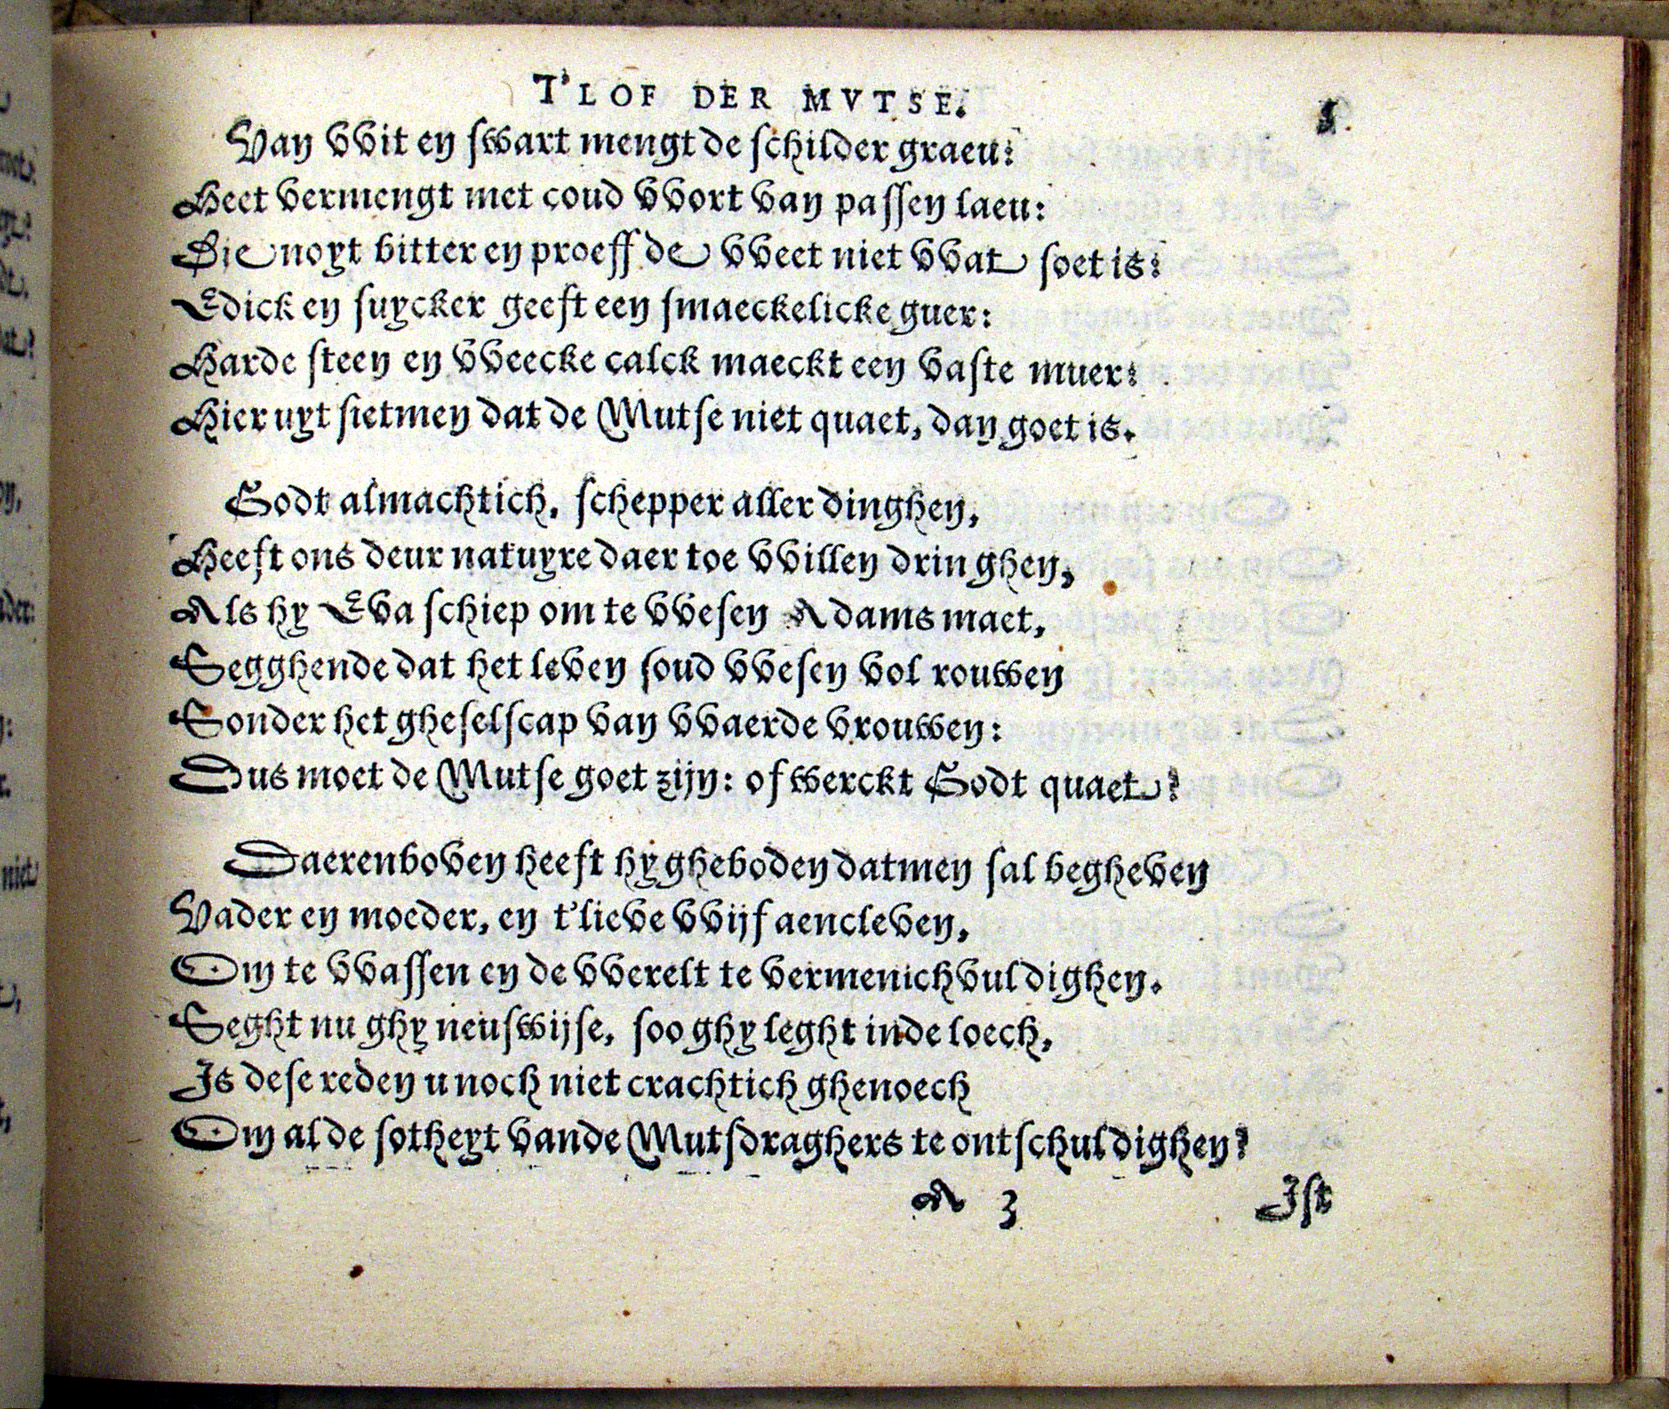 T'LOF DER MVTSE.
Van VVit en swart mengt de schilder graeu:
Heet vermengt met coud VVort van passen laeu:
Die noyt bitter en proeffde VVeet niet VVat soet is:
Edick en suycker geeft een smaeckelicke guer:
Harde steen en VVeecke calck maeckt een vaste muer:
Hier uyt sietmen dat de Mutse niet quaet, dan goet is.
Godt almachtich, schepper aller dinghen,
Heeft ons deur natuyre daer toe VVillen dringhen,
Als hy Eva schiep om te VVesen Adams maet,
Segghende dat het leven soud VVesen vol rouwen
Sonder het gheselscap van VVaerde vrouwen:
Dus moet de Mutse goet zijn: of werckt Godt quaet?
Daerenboven heeft hy gheboden datmen sal begheven
Vader en moeder, en t'lieve VVijf aencleven,
Om te VVassen en de VVerelt te vermenichvuldighen.
Seght nu ghy neuswijse, soo ghy leght inde loech,
Is dese reden u noch niet crachtich ghenoech
Om al de sotheyt vande Mutsdraghers te ontschuldighen?
A 3 Ist